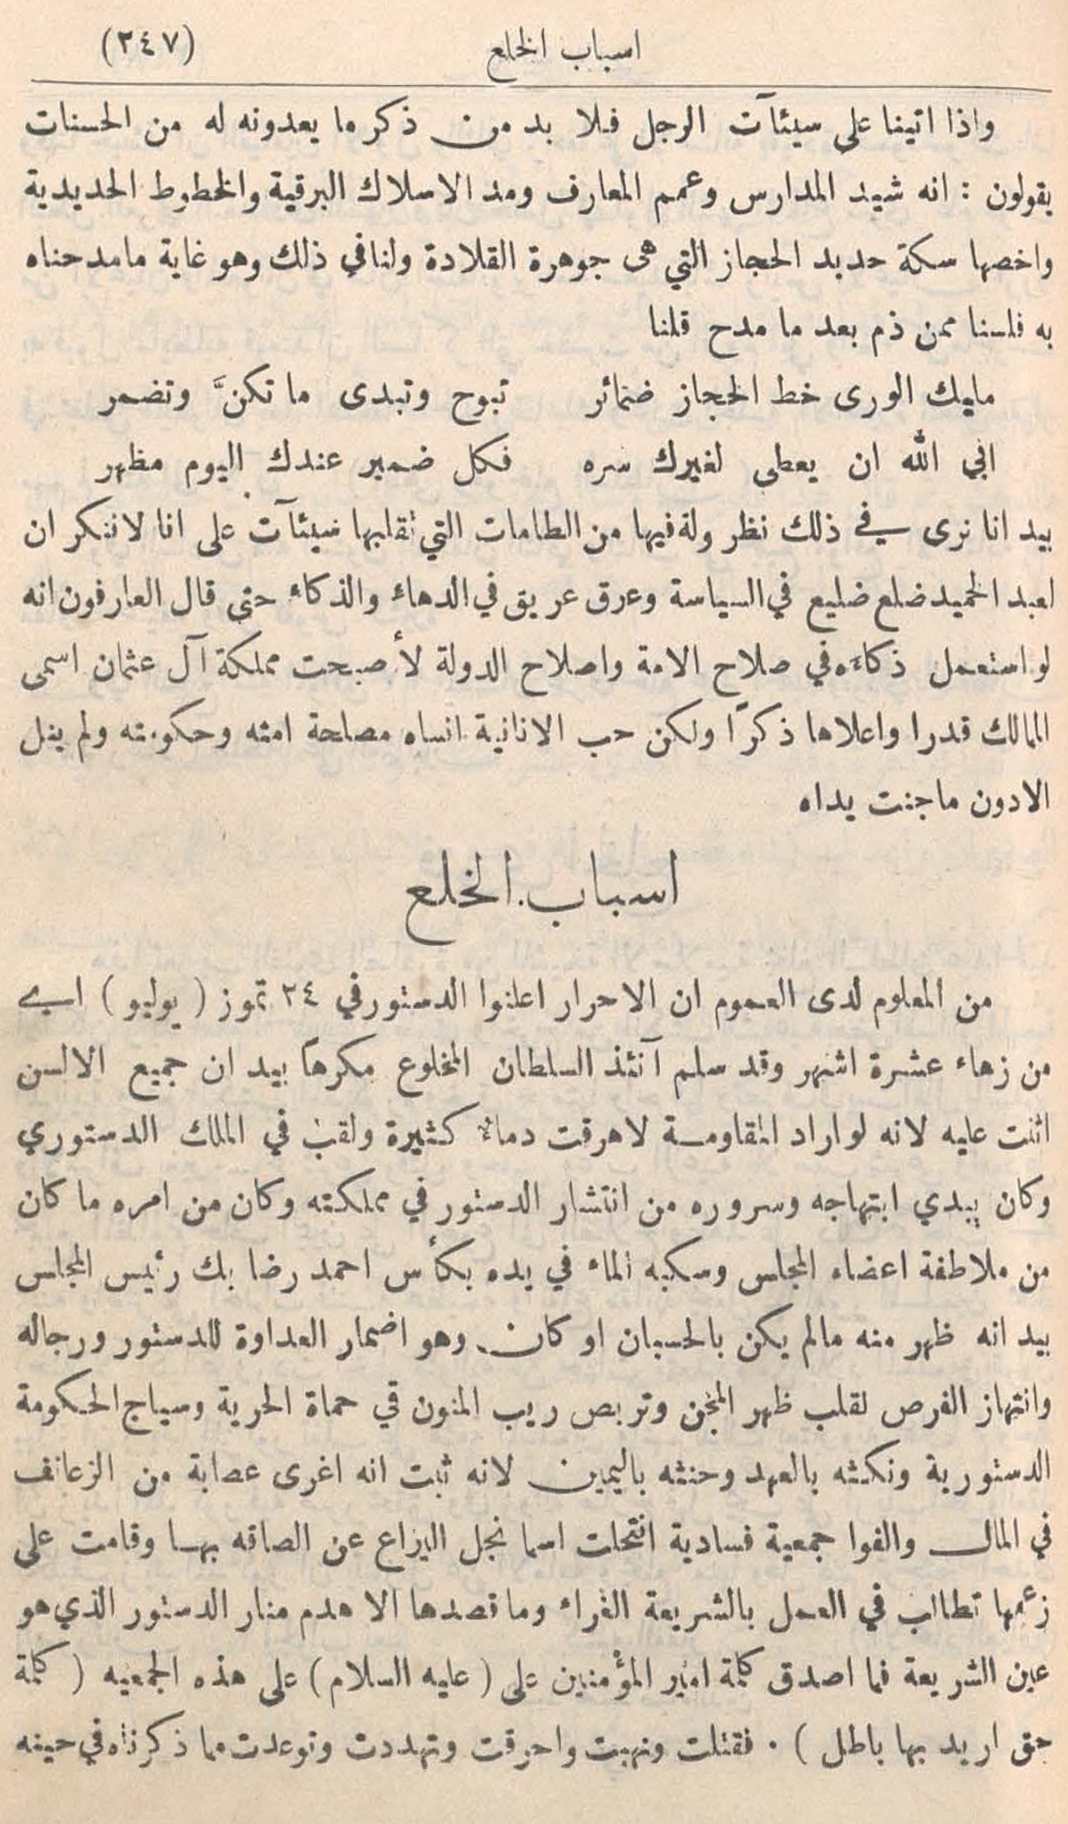 اسباب الخلع (٢٤٧)
واذا اتينا على سيئآت الرجل فلا بد من ذكر ما يعدونه له من الحسنات
يقولون : انه شيد المدارس وعمم المعارف ومد الاسلاك البرقية والخطوط الحديدية
واخصها سكة حديد الحجاز التي هى جوهرة القلادة ولنا في ذلك وهو غاية مامدحناه
به فلسنا ممن ذم بعد ما مدح قلنا
مليك الورى خط الحجاز ضمائر تبوح وتبدى ما تكنَّ وتضمر
ابي الله ان يعطى لغيرك سره فكل ضمير عندك اليوم مظهر
بيد انا نرى في ذلك نظر وله فيها من الطامات التي تقلبها سيئآت على انا لا ننكر ان
لعبد الحميد ضلع ضليع في السياسة وعرق عريق في الدهاء والذكاء حتى قال العارفون انه
لو استعمل ذكاءه في صلاح الامة واصلاح الدولة لأصبحت مملكة آل عثمان اسمى
الممالك قدرا واعلاها ذكرًا ولكن حب الانانية انساه مصلحة امته وحكومته ولم ينل
الادون ماجنت يداه
اسباب الخلع
من المعلوم لدى العموم ان الاحرار اعلنوا الدستور في ٢٤ تموز ( يوليو ) اي
من زهاء عشرة اشهر وقد سلم آنئذ السلطان المخلوع مكرهاً بيد ان جميع الالسن
اثنت عليه لانه لو اراد المقاومة لاهرقت دماء كثيرة ولقب في الملك الدستوري
وكان يبدي ابتهاجه وسروره من انتشار الدستور في مملكته وكان من امره ما كان
من ملاطفة اعضاء المجلس وسكبه الماء في يده بكأس احمد رضا بك رئيس المجلس
بيد انه ظهر منه مالم يكن بالحسبان او كان وهو اضمار العداوة للدستور ورجاله
وانتهاز الفرص لقلب ظهر المجن وتربص ريب المنون في حماة الحرية وسياج الحكومة
الدستورية ونكثه بالعهد وحنثه باليمين لانه ثبت انه اغرى عصابة من الزعانف
في المال والفوا جمعية فسادية انتحلت اسما نجل اليراع عن الصاقه بها وقامت على
زعمها تطالب في العمل بالشريعة الغراء وما قصدها الا هدم منار الدستور الذي هو
عين الشريعة فما اصدق كلمة امير المؤمنين على ( عليه السلام ) على هذه الجمعيه ( كلمة
حق اريد بها باطل ) . فقتلت ونهبت واحرقت وتهددت وتوعدت مما ذكرناه في حينه